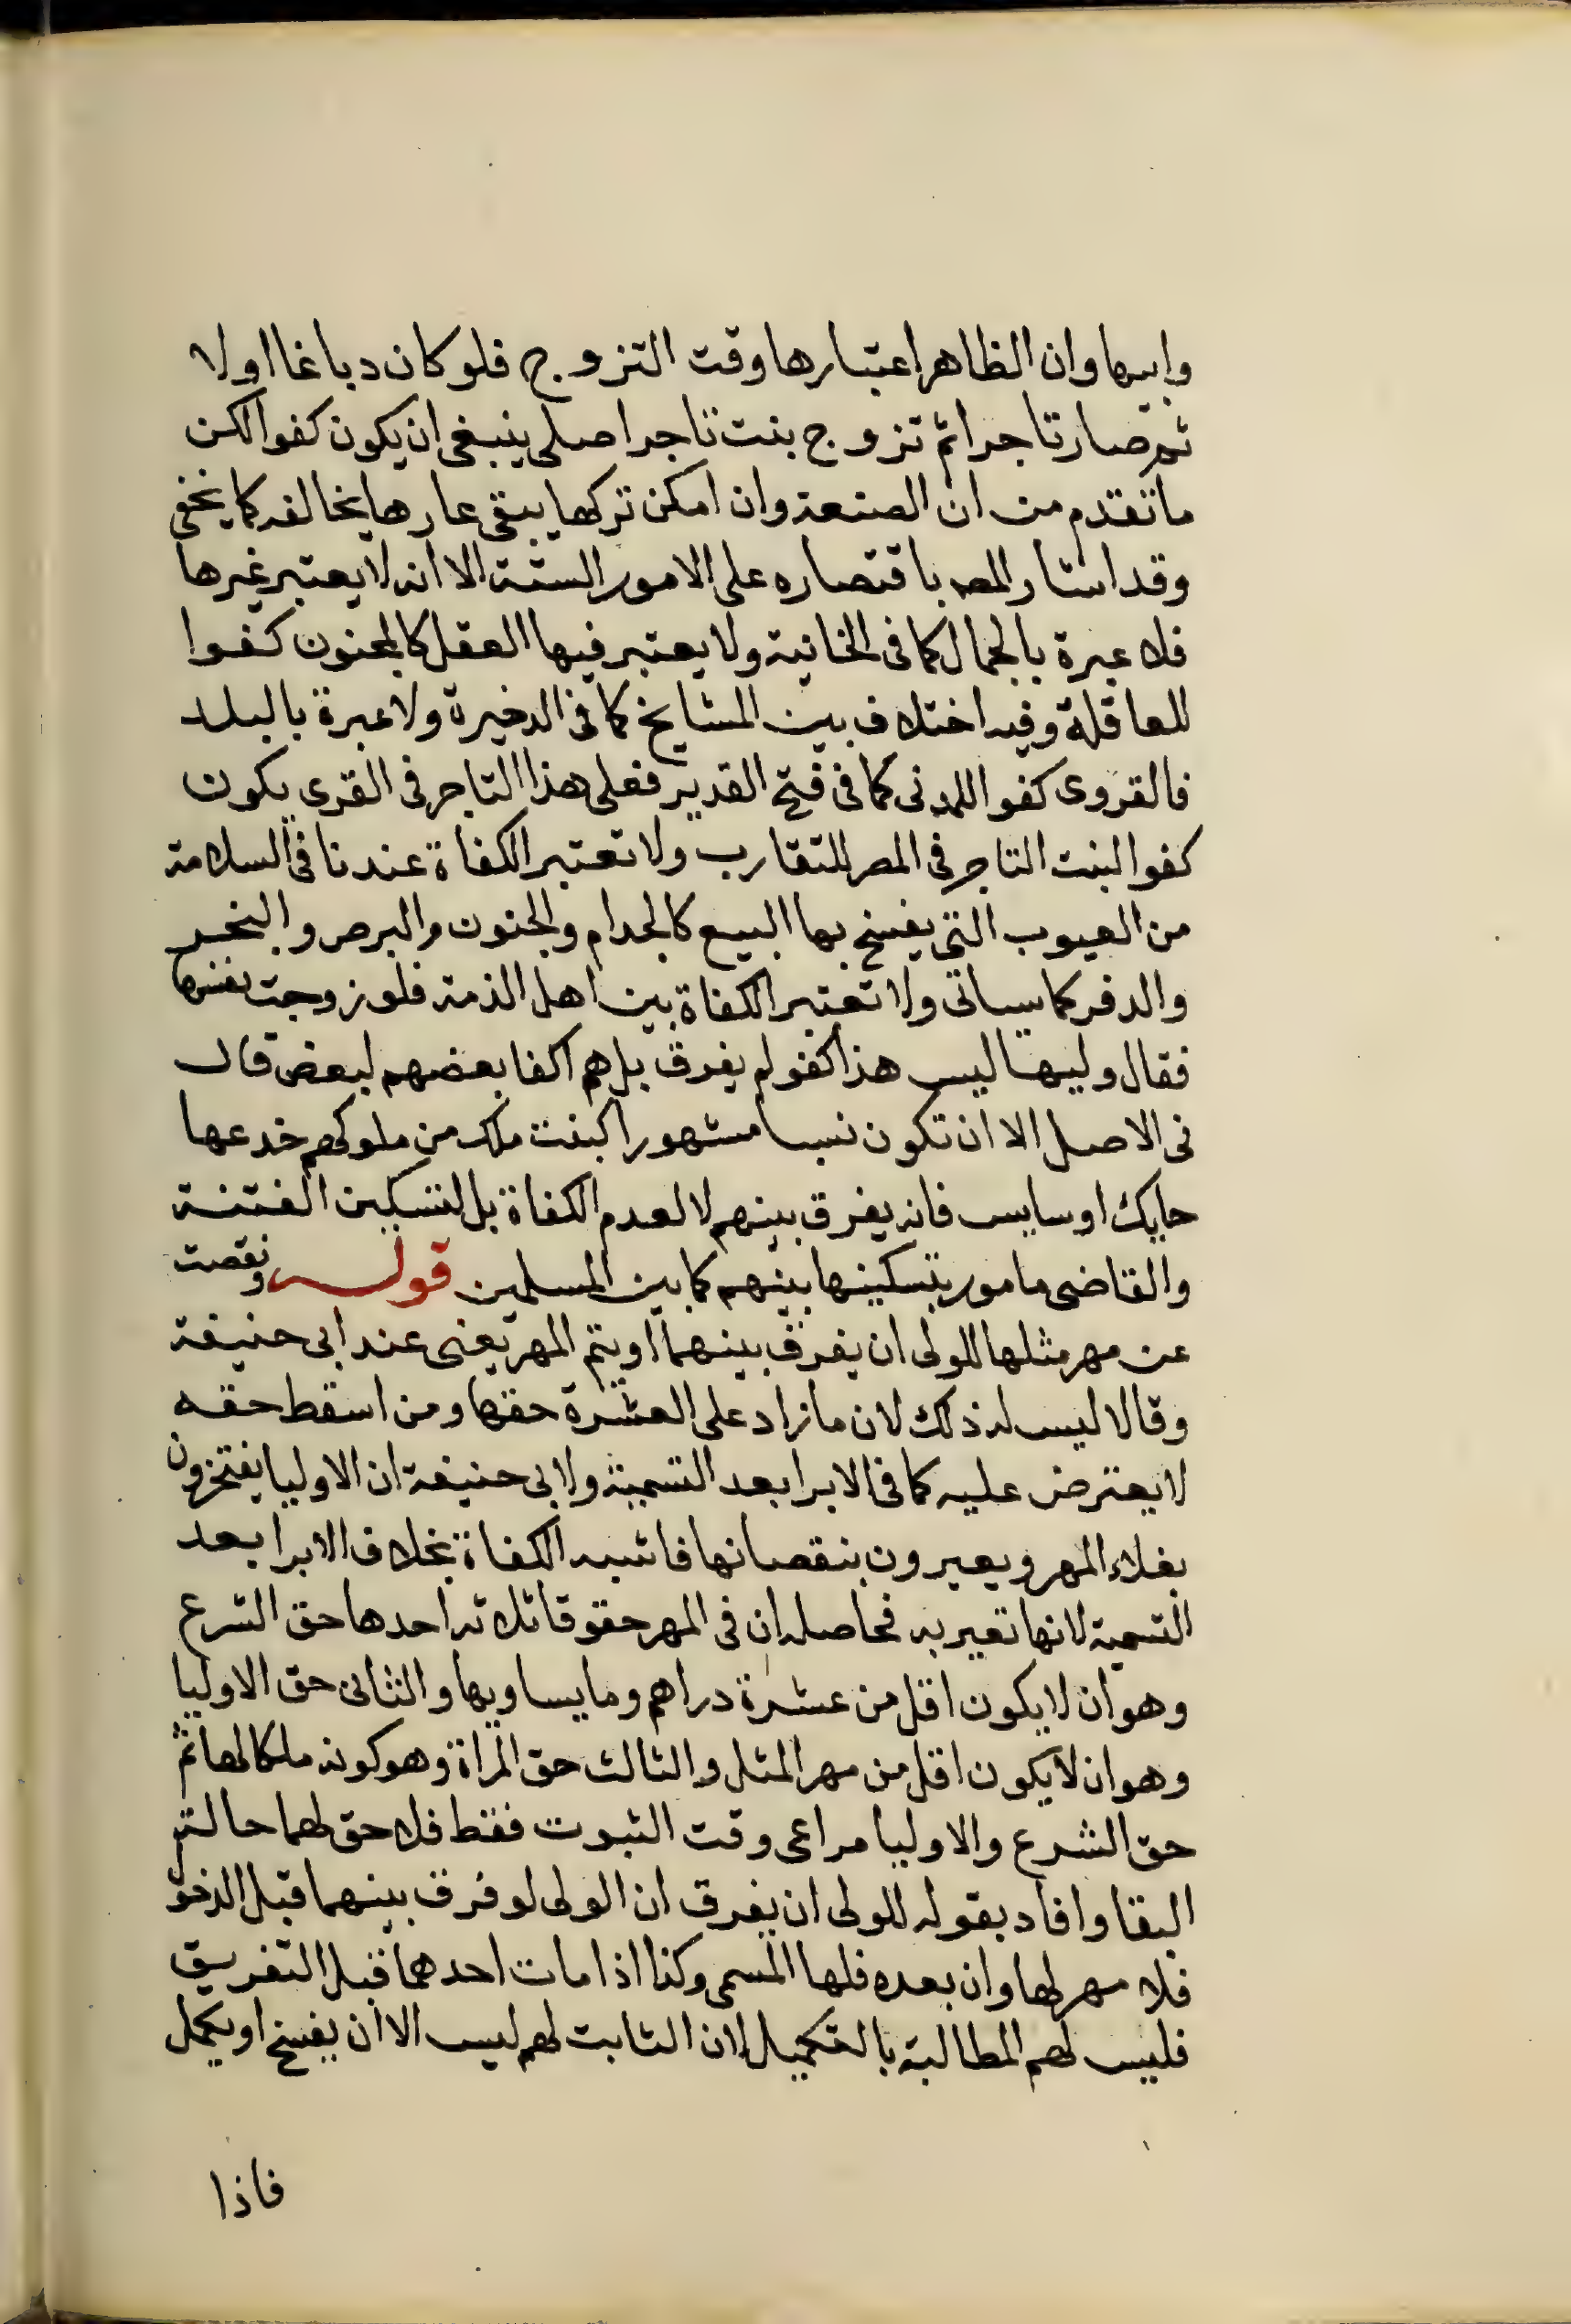 وابيها وان الظاهر اعتبارها وقت التزوج فلو كان دباغا اولا
ثم صار تاجرا ثم تزوج بنت تاجر اصلي ينبغي ان يكون كفوا لكن
ما تقدم من ان الصنعة وان امكن تركها يبقي عارها يخالفه كما يخفي
وقد اشار المصه باقتصاره على الامور الستة الا انه لا يعتبر غيرها
فلا عبرة بالجمال كما فى الخانية ولا يعتبر فيها العقل كالمجنون كفوا
للعاقلة وفيه اختلاف بين المشايخ كما فى الدخيرة ولا عبرة بالبلد
فالقروى كفوا للمدنى كما فى فتح القدير فعلى هذا التاجر فى القرى يكون
كفوا لبنت التاجر فى المصر للتقارب ولا تعتبر الكفاة عندنا فى السلامة
من العيوب التى يفسخ بها البيع كالجدام والجنون والبرص والبخر
والدفر كما سياتى ولا تعتبر الكفاة بين اهل الذمة فلو زوجت نفسها
فقال وليها ليس هذا كفو لم يفرق بل هم اكفا بعضهم لبعض قال
فى الاصل الا ان تكون نسبا مشهورا كبنت ملك من ملوكهم خدعها
حايك او سايس فانه يفرق بينهم لا لعدم الكفاة بل لتسكين الفتنة
والقاضى مامور بتسكينها بينهم كما بين المسلمين قوله ونقصت
عن مهر مثلها للولى ان يفرق بينهما او يتم المهر يعنى عند ابى حنيفة
وقالا ليس له ذلك لان ما زاد على العشرة حقها ومن اسقط حقه
لا يعترض عليه كما فى الابرا بعد التسمية ولابى حنيفة ان الاوليا يفتخرون
بغلاء المهر ويعيرون بنقصانها فاشبه الكفاة بخلاف الابرا بعد
التسمية لانها تعير به فحاصله ان فى المهر حقوقا ثلاثه احدها حق الشرع
وهو ان لا يكون اقل من عشرة دراهم وما يساويها والثانى حق الاوليا
وهو ان لا يكون اقل من مهر المثل والثالث حق المراة وهو كونه ملكا لها ثم
حق الشرع والاوليا مراعى وقت الثبوت فقط فلا حق لهما حالة
البقا وافاد بقوله للولى ان يفرق ان الولى لو فرق بينهما قبل الدخو
فلا مهر لها وان بعده فلها المسمى وكذا اذا مات احدهما قبل التفريق
فليس لهم المطالبة بالتكميل لان الثابت لهم ليس الا ان يفسخ او يكمل
فاذا